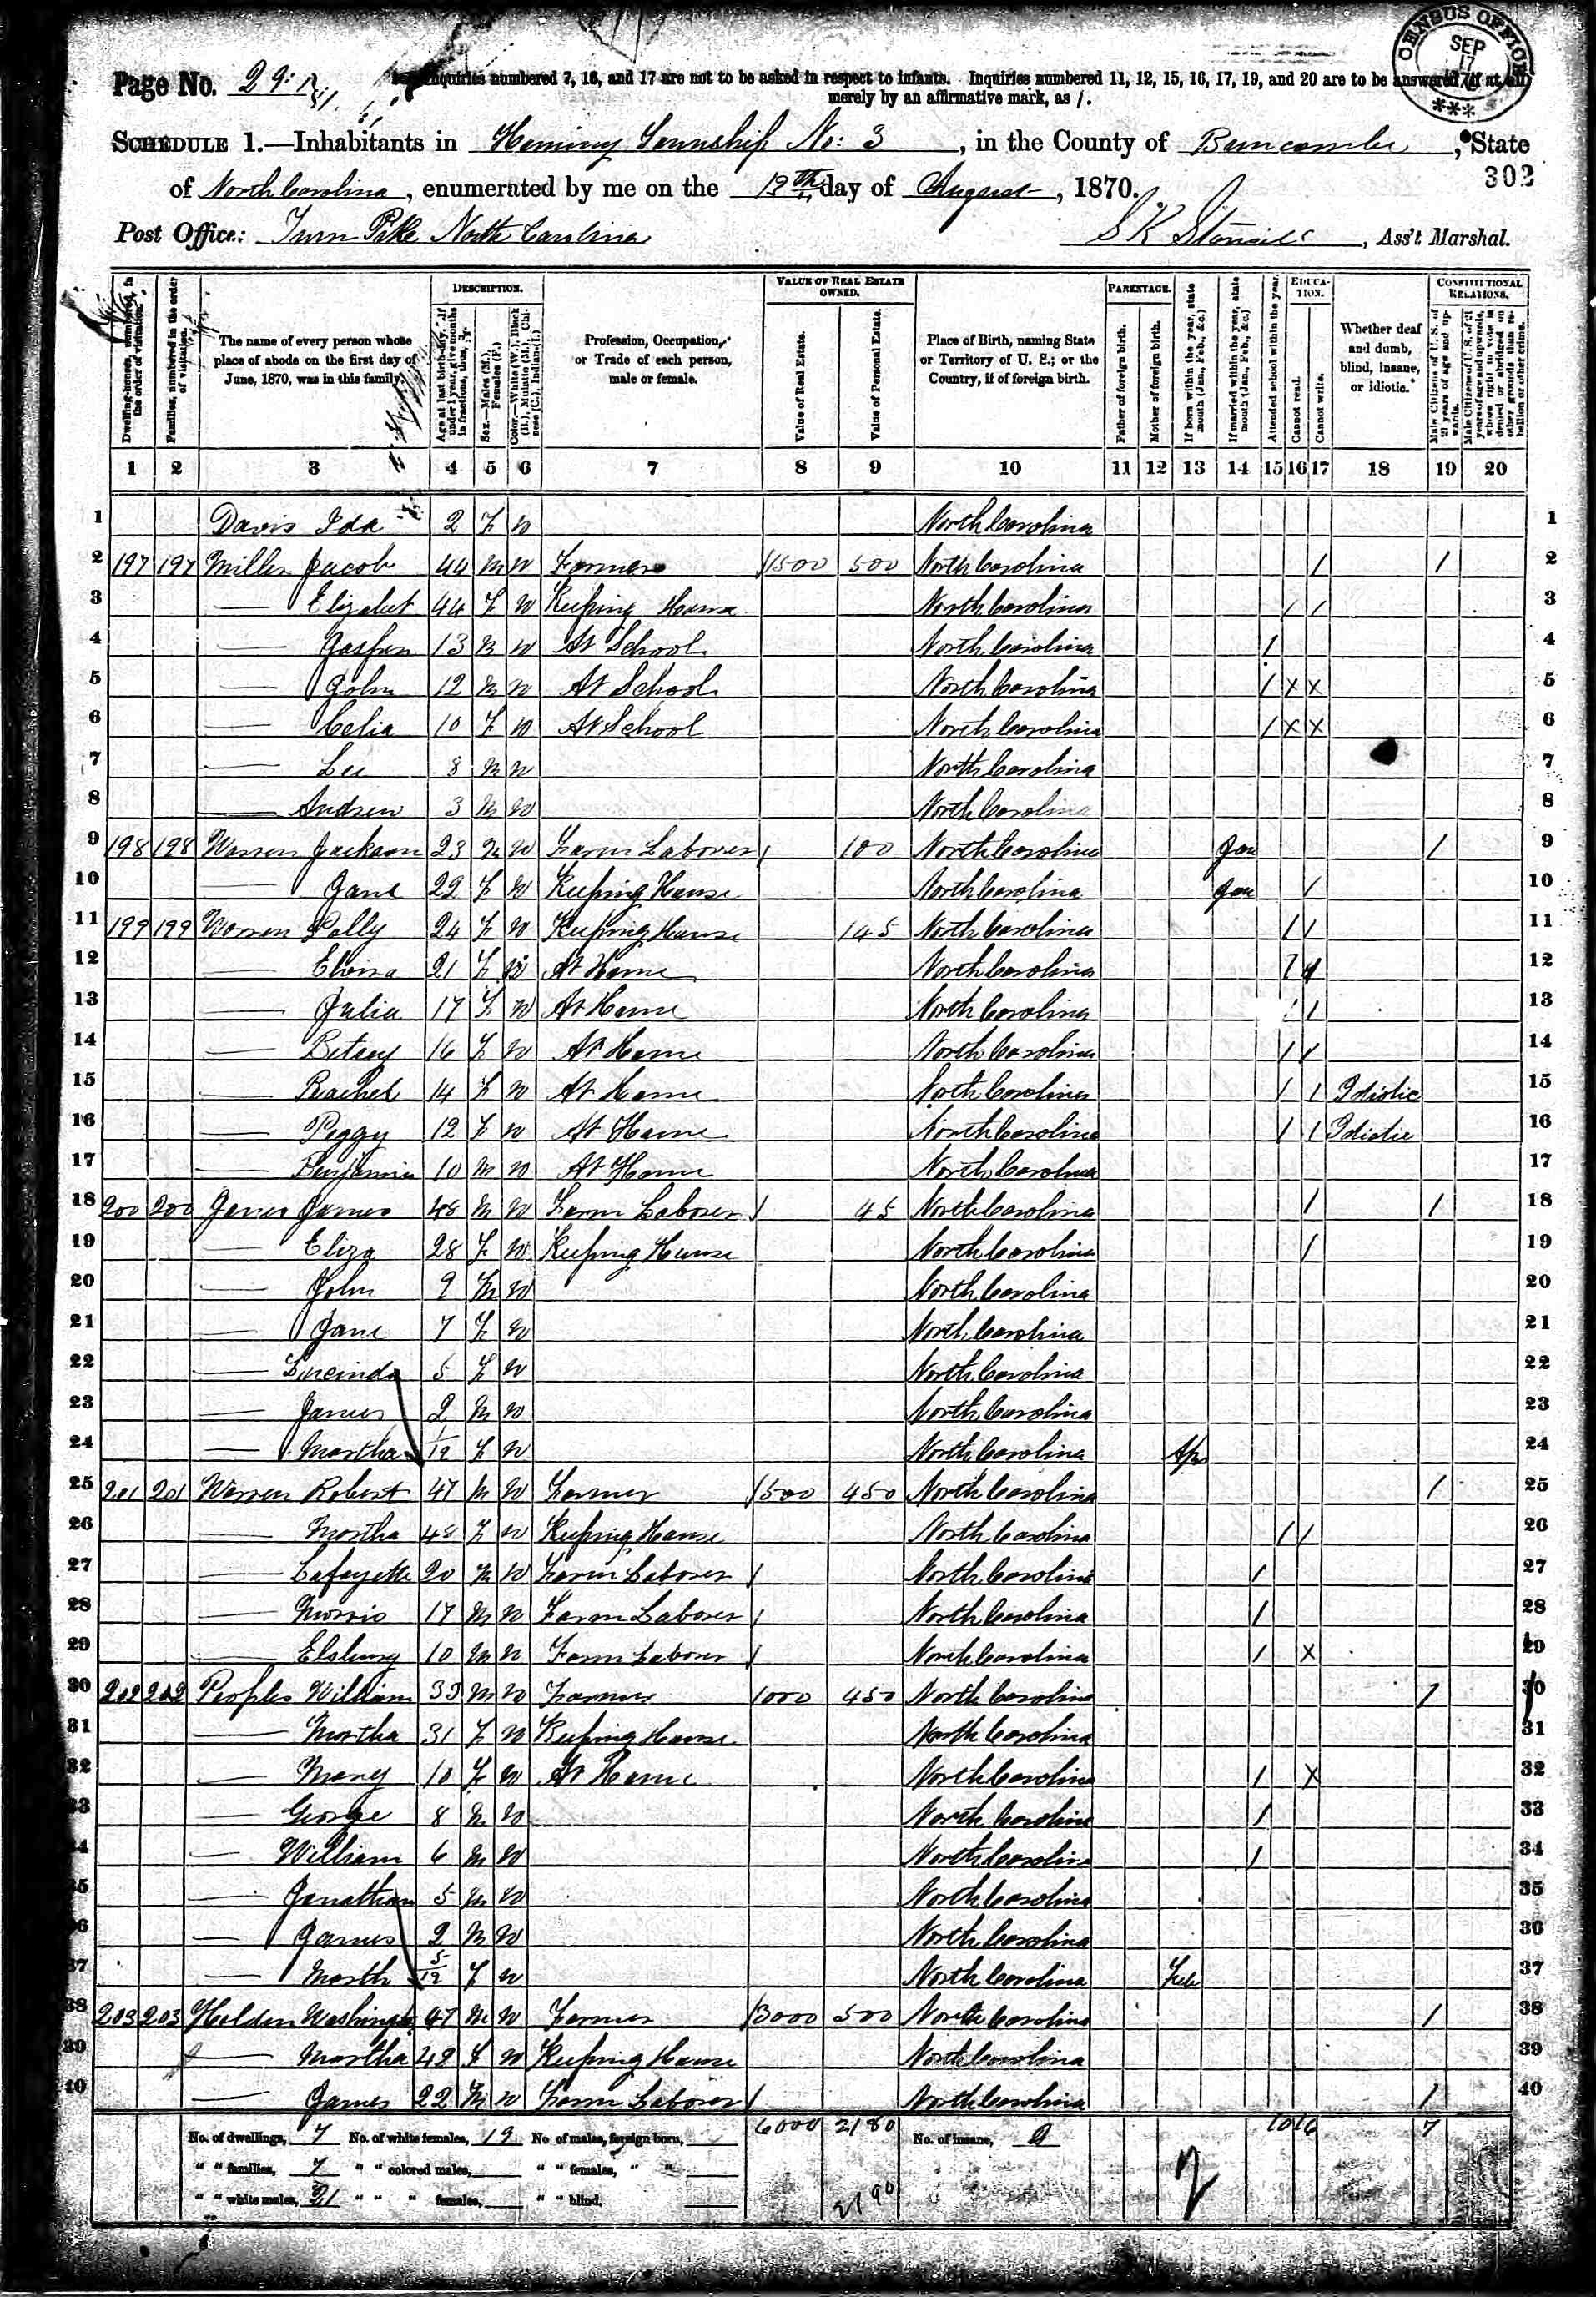 Page No. 29
Inquiries numbered 7, 16, and 17 are not to be asked in respect to infants. Inquiries numbered 11, 12, 15, 16, 17, 19, and 20 are to be answered (if at all)
merely by an affirmative mark, as /.
CENSUS OFFICE SEP 17
SCHEDULE 1.—Inhabitants in Hominy Township No: 3, in the County of Buncombe, State
of North Carolina, enumerated by me on the 12th day of August, 1870.
302
Post Office: Turn Pike North Carolina
S K, Ass't Marshal.
DESCRIPTION. VALUE OF REAL ESTATE OWNED. PARENTAGE. EDUCATION. CONSTITUTIONAL RELATIONS.
Dwelling-houses, numbered in the order of visitation.
Families, numbered in the order of visitation.
The name of every person whose place of abode on the first day of June, 1870, was in this family.
Age at last birth-day. If under 1 year, give months in fractions, thus, 3/12.
Sex.—Males (M.), Females (F.)
Color.—White (W.), Black (B.), Mulatto (M.), Chinese (C.), Indian (I.)
Profession, Occupation, or Trade of each person, male or female.
Value of Real Estate.
Value of Personal Estate.
Place of Birth, naming State or Territory of U. S.; or the Country, if of foreign birth.
Father of foreign birth.
Mother of foreign birth.
If born within the year, state month (Jan., Feb., &c.)
If married within the year, state month (Jan., Feb., &c.)
Attended school within the year.
Cannot read.
Cannot write.
Whether deaf and dumb, blind, insane, or idiotic.
Male Citizens of U. S. of 21 years of age and upwards.
Male Citizens of U. S. of 21 years of age and upwards, whose right to vote is denied or abridged on other grounds than rebellion or other crime.
1 2 3 4 5 6 7 8 9 10 11 12 13 14 15 16 17 18 19 20
1 Davis Ida 2 F W North Carolina 1
2 197 197 Miller Jacob 44 M W Farmer 1500 500 North Carolina / / 2
3 — Elizabet 44 F W Keeping House North Carolina / / 3
4 — Jasper 13 M W At School North Carolina / 4
5 — John 12 M W At School North Carolina / X X 5
6 — Celia 10 F W At School North Carolina / X X 6
7 — Lee 8 M W North Carolina 7
8 — Andrew 3 M W North Carolina 8
9 198 198 Warren Jackson 23 M W Farm Laborer / 100 North Carolina Jan / 9
10 — Jane 22 F W Keeping House North Carolina Jan / 10
11 199 199 Warren Polly 24 F W Keeping House 145 North Carolina / / 11
12 — 21 F W At Home North Carolina / / 12
13 — Julia 17 F W At Home North Carolina / / 13
14 — Betsey 16 F W At Home North Carolina / / 14
15 — Rachel 14 F W At Home North Carolina / / Idiotic 15
16 — Peggy 12 F W At Home North Carolina / / Idiotic 16
17 — Benjamin 10 M W At Home North Carolina 17
18 200 200 James 48 M W Farm Laborer / 45 North Carolina / / 18
19 — Eliza 28 F W Keeping House North Carolina / 19
20 — John 9 M W North Carolina 20
21 — Jane 7 F W North Carolina 21
22 — Lucinda 5 F W North Carolina 22
23 — James 2 M W North Carolina 23
24 — Martha 1/12 F W North Carolina Apr 24
25 201 201 Warren Robert 47 M W Farmer 1500 450 North Carolina / 25
26 — Martha 48 F W Keeping House North Carolina / / 26
27 — Lafayette 20 M W Farm Laborer / North Carolina / 27
28 — Morris 17 M W Farm Laborer / North Carolina / 28
29 — Elsbury 10 M W Farm Laborer / North Carolina / X 29
30 202 202 Peoples William 33 M W Farmer 1000 450 North Carolina / 30
31 — Martha 31 F W Keeping House North Carolina 31
32 — Mary 10 F W At Home North Carolina / X 32
33 — George 8 M W North Carolina / 33
34 — William 6 M W North Carolina / 34
35 — Jonathan 5 M W North Carolina 35
36 — James 2 M W North Carolina 36
37 — Marth 5/12 F W North Carolina Feb 37
38 203 203 Holden Washington 47 M W Farmer 3000 500 North Carolina / 38
39 — Martha 42 F W Keeping House North Carolina 39
40 — James 22 M W Farm Laborer / North Carolina / 40
No. of dwellings, 7 No. of white females, 19 No. of males, foreign born, 6000 2180 No. of insane, 10 16 7
" " families, 7 " " colored males, " " females, " "
" " white males, 21 " " " females, " " blind, 2190 2